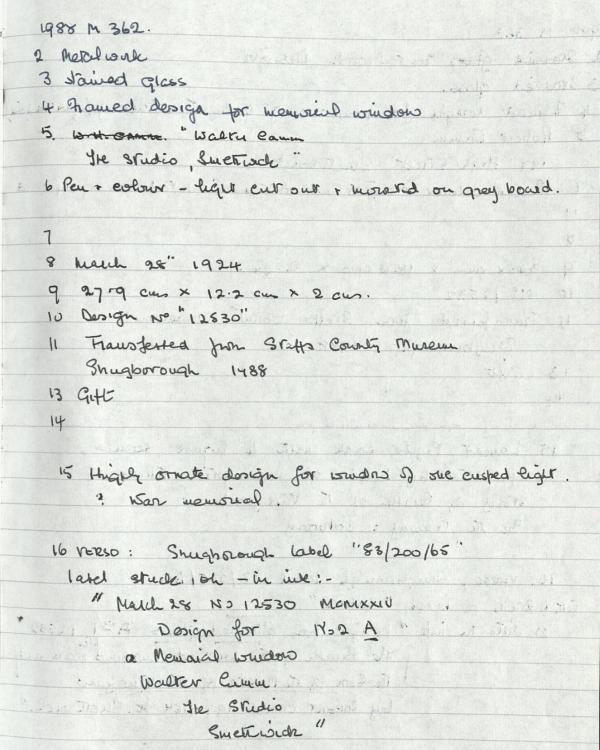 1988 M 362.
2 Metalwork
3 Stained Glass
4 Framed design for memorial window
5. "Walter Camm
The Studio, Smethwick"
6 Pen + colour - light cut out + mounted on grey board.
7
8 March 28" 1924
9 27.9 cms x 12.2 cm x 2 cms.
10 Design No "12530"
11 Transferred from Staffs County Museum
Shugborough 1988
13 Gift
14
15 Highly ornate design for window of one cusped light.
? War memorial.
16 VERSO: Shugborough label "83/200/65"
label stuck on - in ink:-
" March 28 No 12530 MCMXXIV
Design for No 2 A
a Memorial window
Walter Camm.
The Studio
Smethwick "